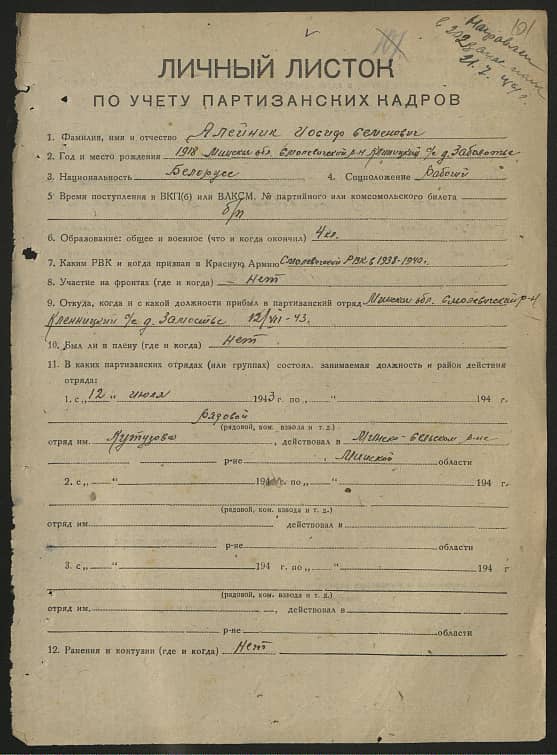 101
101
Направлен
в 202
21.7.44г.
ЛИЧНЫЙ ЛИСТОК
ПО УЧЕТУ ПАРТИЗАНСКИХ КАДРОВ
1. Фамилия, имя и отчество Алейник Иосиф Семенович
2. Год и место рождения 1918 Минская обл. Смолевичский р-н, Кленицкий с/с д. Заболотье
3. Национальность Белорус 4. Соцположение Рабочий
5 Время поступления в ВКП(б) или ВЛКСМ, № партийного или комсомольского билета
б/п
6. Образование: общее и военное (что и когда окончил) 4 кл.
7. Каким РВК и когда призван в Красную Армию Смолевичский РВК в 1938-1940г.
8. Участие на фронтах (где и когда) Нет
9. Откуда, когда и с какой должности прибыл в партизанский отряд Минская обл. Смолевичский р-н
Кленницкий с/с д. Замостье 12/VII-43.
10. Был ли в плену (где и когда) Нет
11. В каких партизанских отрядах (или группах) состоял, занимаемая должность и район действия
отряда:
1. с „12„ июля 1943 г. по „ “ 194 г.
Рядовой
(рядовой, ком. взвода и т. д.)
отряд им. Кутузова, действовал в Минско-сельском р-не
р-не, Минской области
2. с „ “ 194 г. по „ “ 194 г.
(рядовой, ком. взвода и т. д.)
отряд им. действовал в
р-не области
3. с „ “ 194 г. по „ “ 194 г
(рядовой, ком. взвода и т. д.)
отряд им. , действовал в
р-не области
12. Ранения и контузии (где и когда) Нет